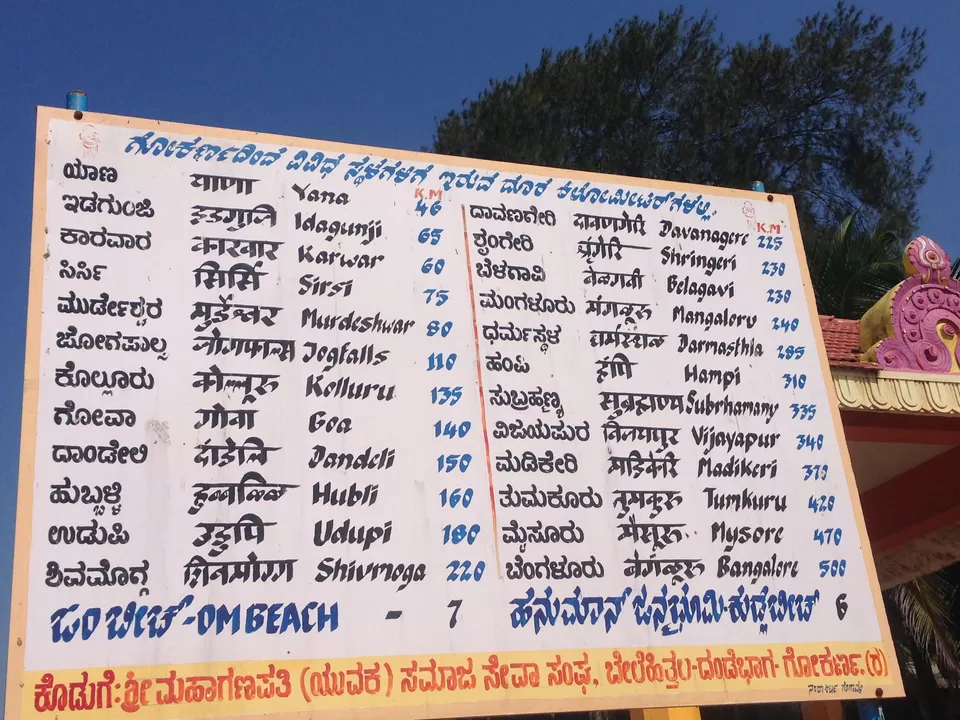 ಗೋಕರ್ಣದಿಂದ ವಿವಿಧ ಸ್ಥಳಗಳಿಗೆ ಇರುವ ದೂರ ಕಿಲೋಮೀಟರ್‌ಗಳಲ್ಲಿ.
K.M
ಯಾಣ याणा Yana 46
ಇಡಗುಂಜಿ इडगुंजि Idagunji 65
ಕಾರವಾರ कारवार Karwar 60
ಸಿರ್ಸಿ सिर्सि Sirsi 75
ಮುರ್ಡೇಶ್ವರ मुर्डेश्वर Murdeshwar 80
ಜೋಗಪಾಲ್ಸ जोगफाल्स Jogfalls 110
ಕೊಲ್ಲೂರು कोल्लूरु Kolluru 135
ಗೋವಾ गोवा Goa 140
ದಾಂಡೇಲಿ दांडेलि Dandeli 150
ಹುಬ್ಬಳ್ಳಿ हुब्बळ्ळि Hubli 160
ಉಡುಪಿ उडुपि Udupi 180
ಶಿವಮೊಗ್ಗ शिवमोग्गा Shivmoga 220
K.M
ದಾವಣಗೇರಿ दावणगेरि Davanagere 225
ಶೃಂಗೇರಿ शृंगेरि Shringeri 230
ಬೆಳಗಾವಿ बेळगावी Belagavi 230
ಮಂಗಳೂರು मंगळूरु Mangaloru 240
ಧರ್ಮಸ್ಥಳ धर्मस्थळ Darmasthla 285
ಹಂಪಿ हंपि Hampi 310
ಸುಬ್ರಹ್ಮಣ್ಯ सुब्रह्मण्य Subrhamany 335
ವಿಜಯಪುರ विजयपुर Vijayapur 340
ಮಡಿಕೇರಿ मडिकेरि Madikeri 370
ತುಮಕೂರು तुमकुरु Tumkuru 420
ಮೈಸೂರು मैसूरु Mysore 470
ಬೆಂಗಳೂರು बेंगळूरु Bangalore 500
ಓಂ ಬೀಚ್-OM BEACH - 7
ಹನುಮಾನ್ ಜನ್ಮಭೂಮಿ-ಕುಡ್ಲೆಬೀಚ್ 6
ಕೊಡುಗೆ:-ಶ್ರೀ ಮಹಾಗಣಪತಿ (ಯುವಕ) ಸಮಾಜ ಸೇವಾ ಸಂಘ, ಬೇಲೆಹಿತ್ತಲ-ದಂಡೆಭಾಗ-ಗೋಕರ್ಣ.(ರಿ)